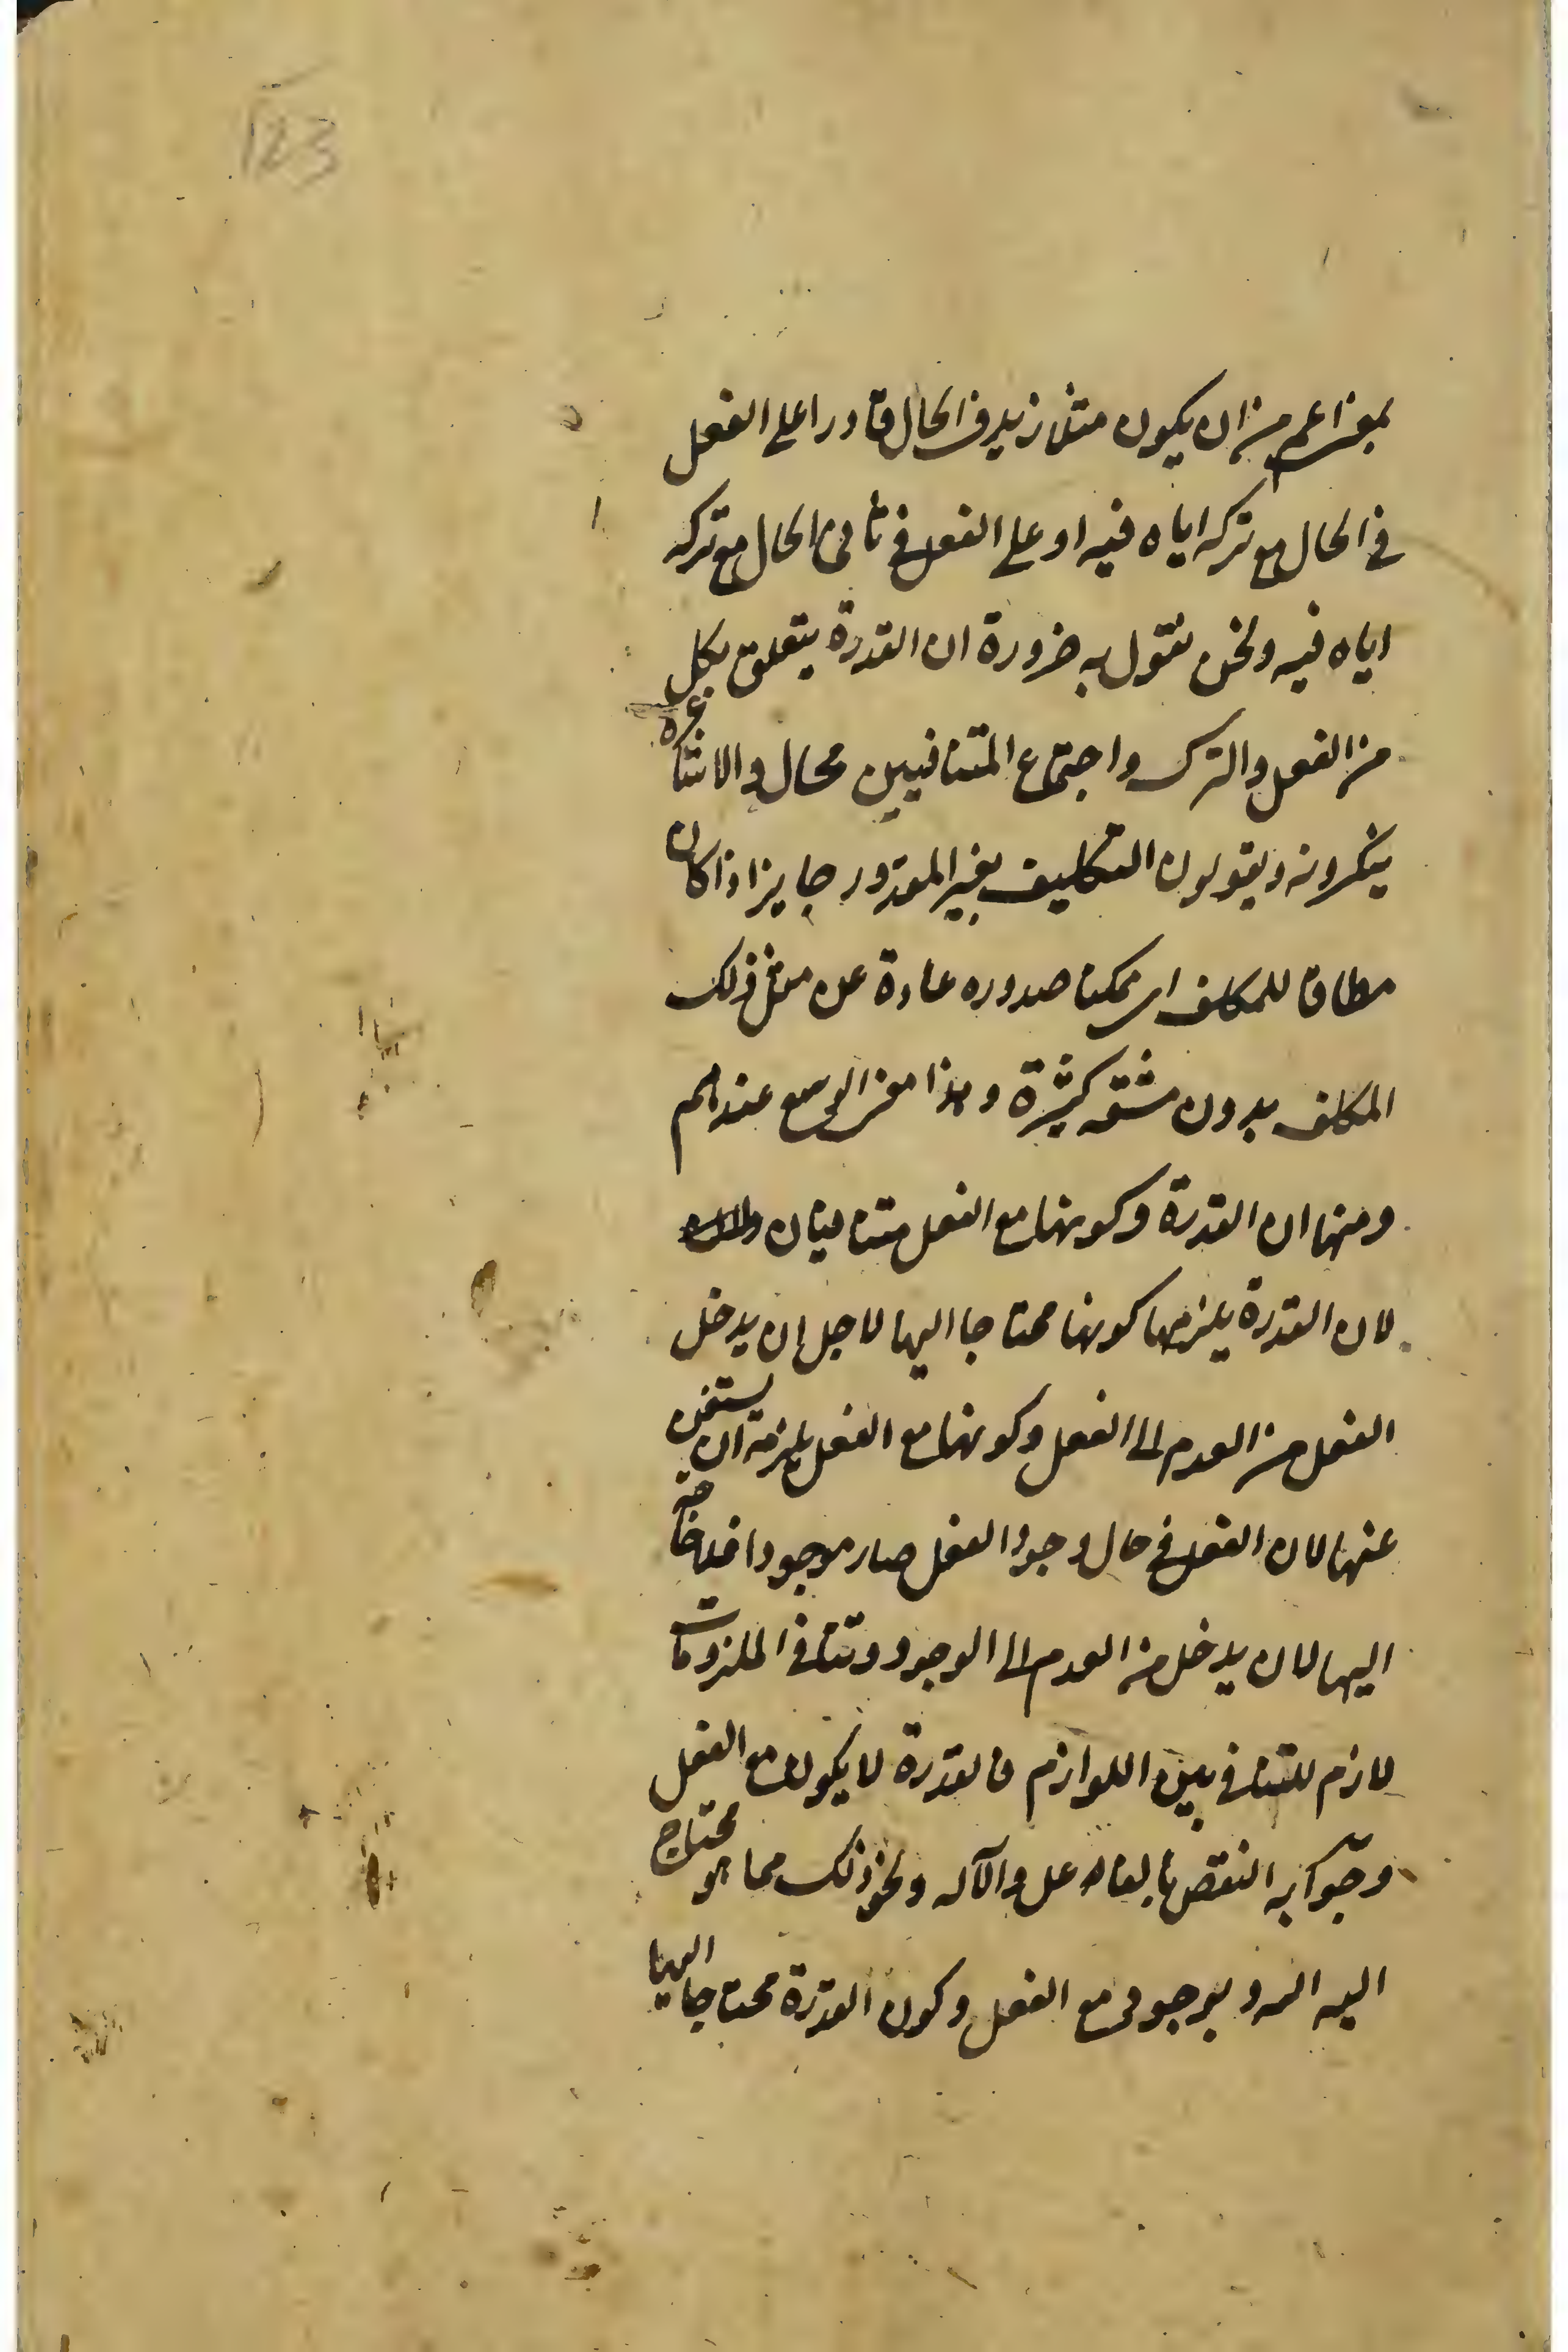 123
بمعنى اعم من ان يكون مثلا زيد فى الحال قادرا على الفعل
فى الحال مع تركه اياه فيه او على الفعل فى ثانى الحال مع تركه
اياه فيه ونحن نقول به ضرورة ان القدرة يتعلق بكل
من الفعل والترك واجتماع المتنافيين محال والاشاعرة
ينكرونه ويقولون التكليف بغير المقدور جايز اذا كان
مطاقا للمكلف اى ممكنا صدوره عادة عن مثل ذلك
المكلف بدون مشقه كثيرة وهذا معنى الوسع عندهم
ومنها ان القدرة وكونها مع الفعل متنافيان
لان القدرة يلزمها كونها محتاجا اليها لاجل ان يدخل
الفعل من العدم الى الفعل وكونها مع الفعل يلزمه ان يستغنى
عنها لان الفعل فى حال وجود الفعل صار موجودا فلا حاجة
اليها لان يدخل من العدم الى الوجود وتنافى الملزومات
لازم للتنافى بين اللوازم فالقدرة لا يكون مع الفعل
وجوابه النقض بالفاعل والآله ونحو ذلك مما هو محتاج
اليه مع الفعل وكون القدرة محتاجا اليها